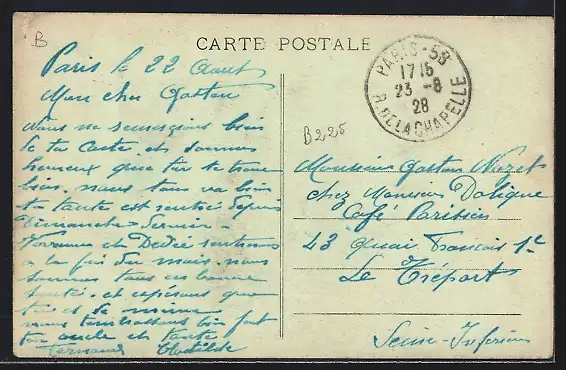 B
CARTE POSTALE
Paris le 22 Aout
Mon cher Gaston
Nous te remercions bien
de ta Carte et sommes
heureux que tu te trouve
bien. nous tous va bien
ta tante est rentré depuis
Dimanche dernier
et Dédée rentrons
a la fin du mois. nous
sommes tous en bonne
santé. et espérons que
toi et de meme
nous t'embrassons bien fort
ton oncle et tante
Fernand Clotilde
PARIS-58
1715
23 -8
28
R. DE LA CHAPELLE
B225
Monsieur Gaston Nozet
chez Monsieur Dolique
Café Parisien
43 quai Francois 1e
Le Tréport
Seine-Inférieure